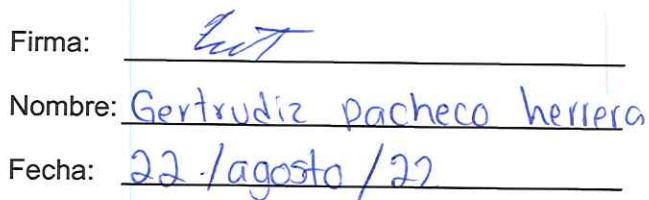 Firma:
Nombre: Gertrudiz pacheco herrera
Fecha: 22 / agosto / 22